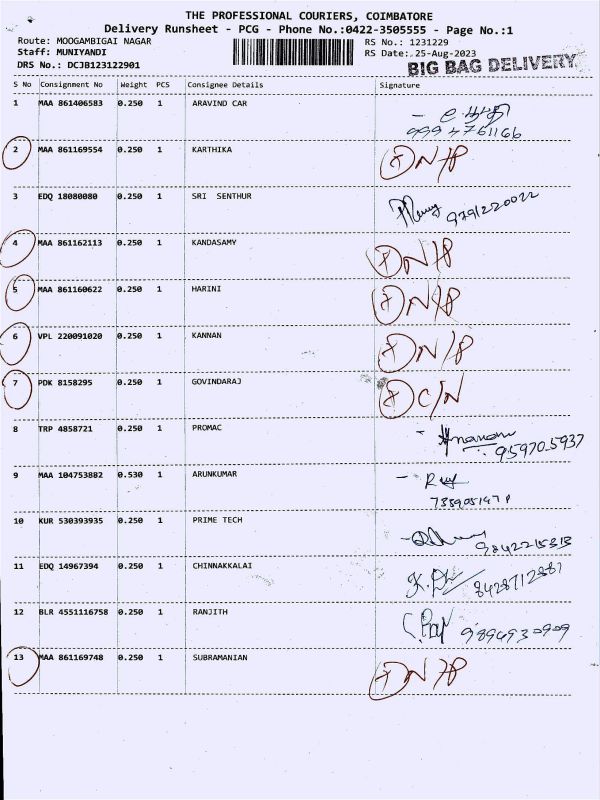 THE PROFESSIONAL COURIERS, COIMBATORE
Delivery Runsheet - PCG - Phone No.:0422-3505555 - Page No.:1
Route: MOOGAMBIGAI NAGAR RS No.: 1231229
Staff: MUNIYANDI RS Date: 25-Aug-2023
DRS No.: DCJB123122901 BIG BAG DELIVERY
S No Consignment No Weight PCS Consignee Details Signature
1 MAA 861406583 0.250 1 ARAVIND CAR
9994761166
2 MAA 861169554 0.250 1 KARTHIKA N/P
3 EDQ 18080080 0.250 1 SRI SENTHUR 9791220022
4 MAA 861162113 0.250 1 KANDASAMY N/P
5 MAA 861160622 0.250 1 HARINI N/P
6 VPL 220091020 0.250 1 KANNAN N/P
7 PDK 8158295 0.250 1 GOVINDARAJ C/N
8 TRP 4858721 0.250 1 PROMAC
95970.5937
9 MAA 104753882 0.530 1 ARUNKUMAR
10 KUR 530393935 0.250 1 PRIME TECH
11 EDQ 14967394 0.250 1 CHINNAKKALAI 8428712881
12 BLR 4551116758 0.250 1 RANJITH 9894930909
13 MAA 861169748 0.250 1 SUBRAMANIAN N/P